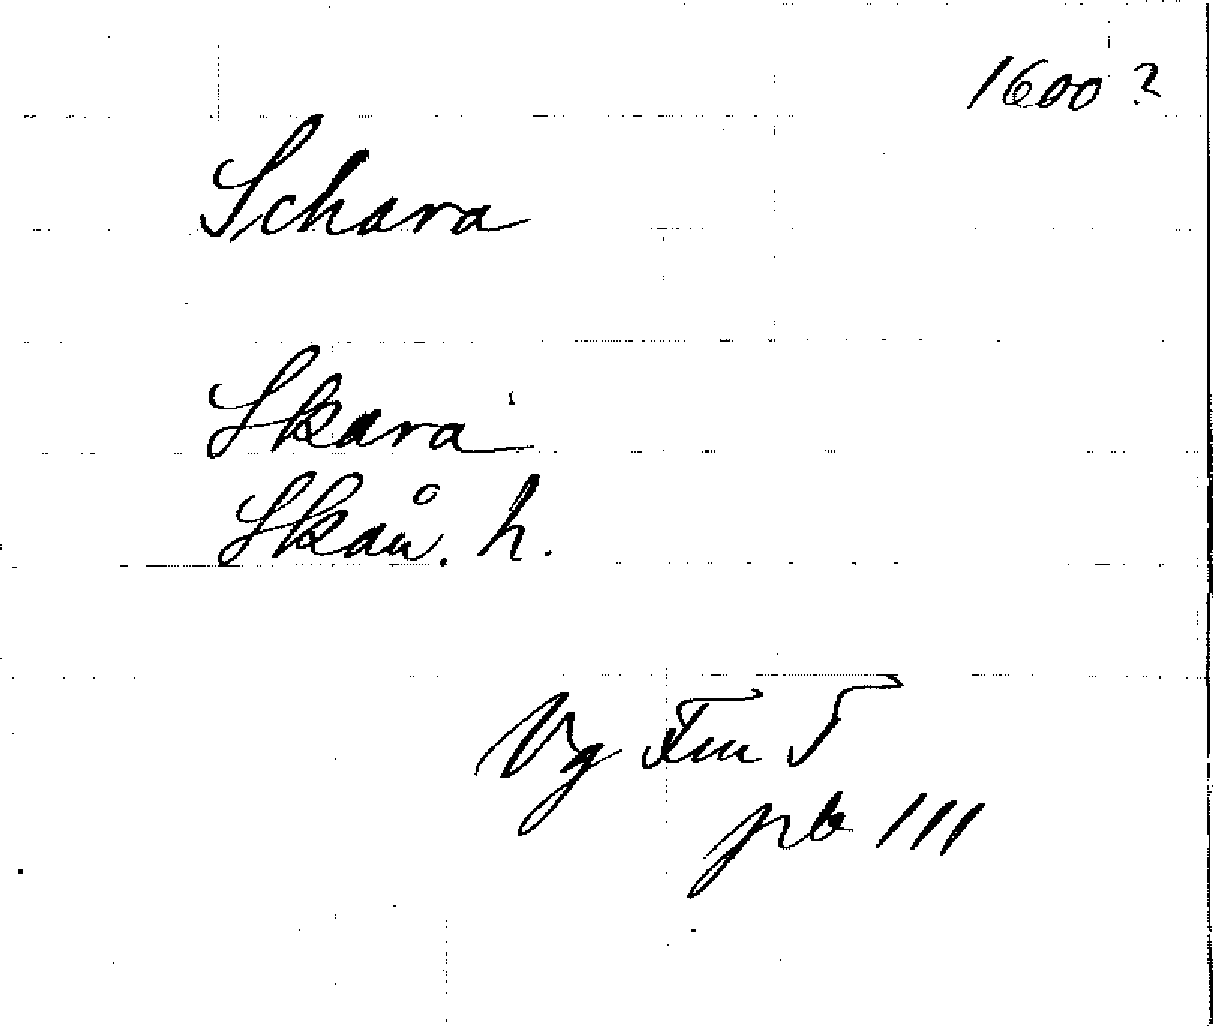 1600?
Schara
Skara
Skån. h.
Vg Fm 5
pb 111